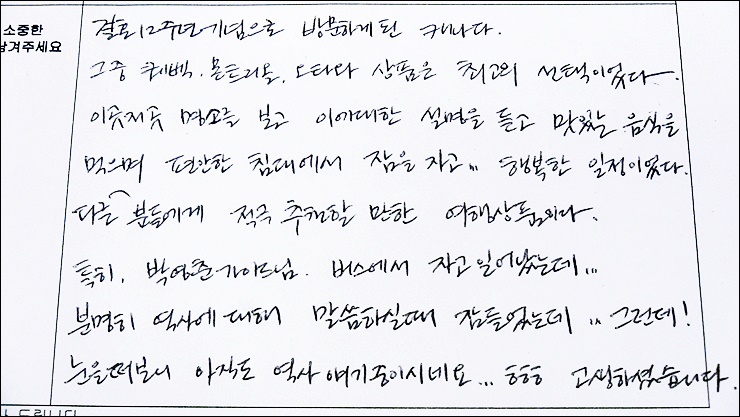 소중한
남겨주세요
결혼12주년기념으로 방문하게 된 캐나다.
그중 퀘벡. 몬트리올, 오타와 상품은 최고의 선택이었다.
이곳저곳 명소를 보고 이에대한 설명을 듣고 맛있는 음식을
먹으며 편안한 침대에서 잠을 자고.. 행복한 일정이었다.
다른 분들에게 적극 추천할 만한 여행상품이다.
특히, 박영춘가이드님. 버스에서 자고 일어났는데...
분명히 역사에 대해 말씀하실때 잠들었는데 .. 그런데!
눈을떠보니 아직도 역사 얘기중이시네요... ㅎㅎㅎ 고생하셨습니다.